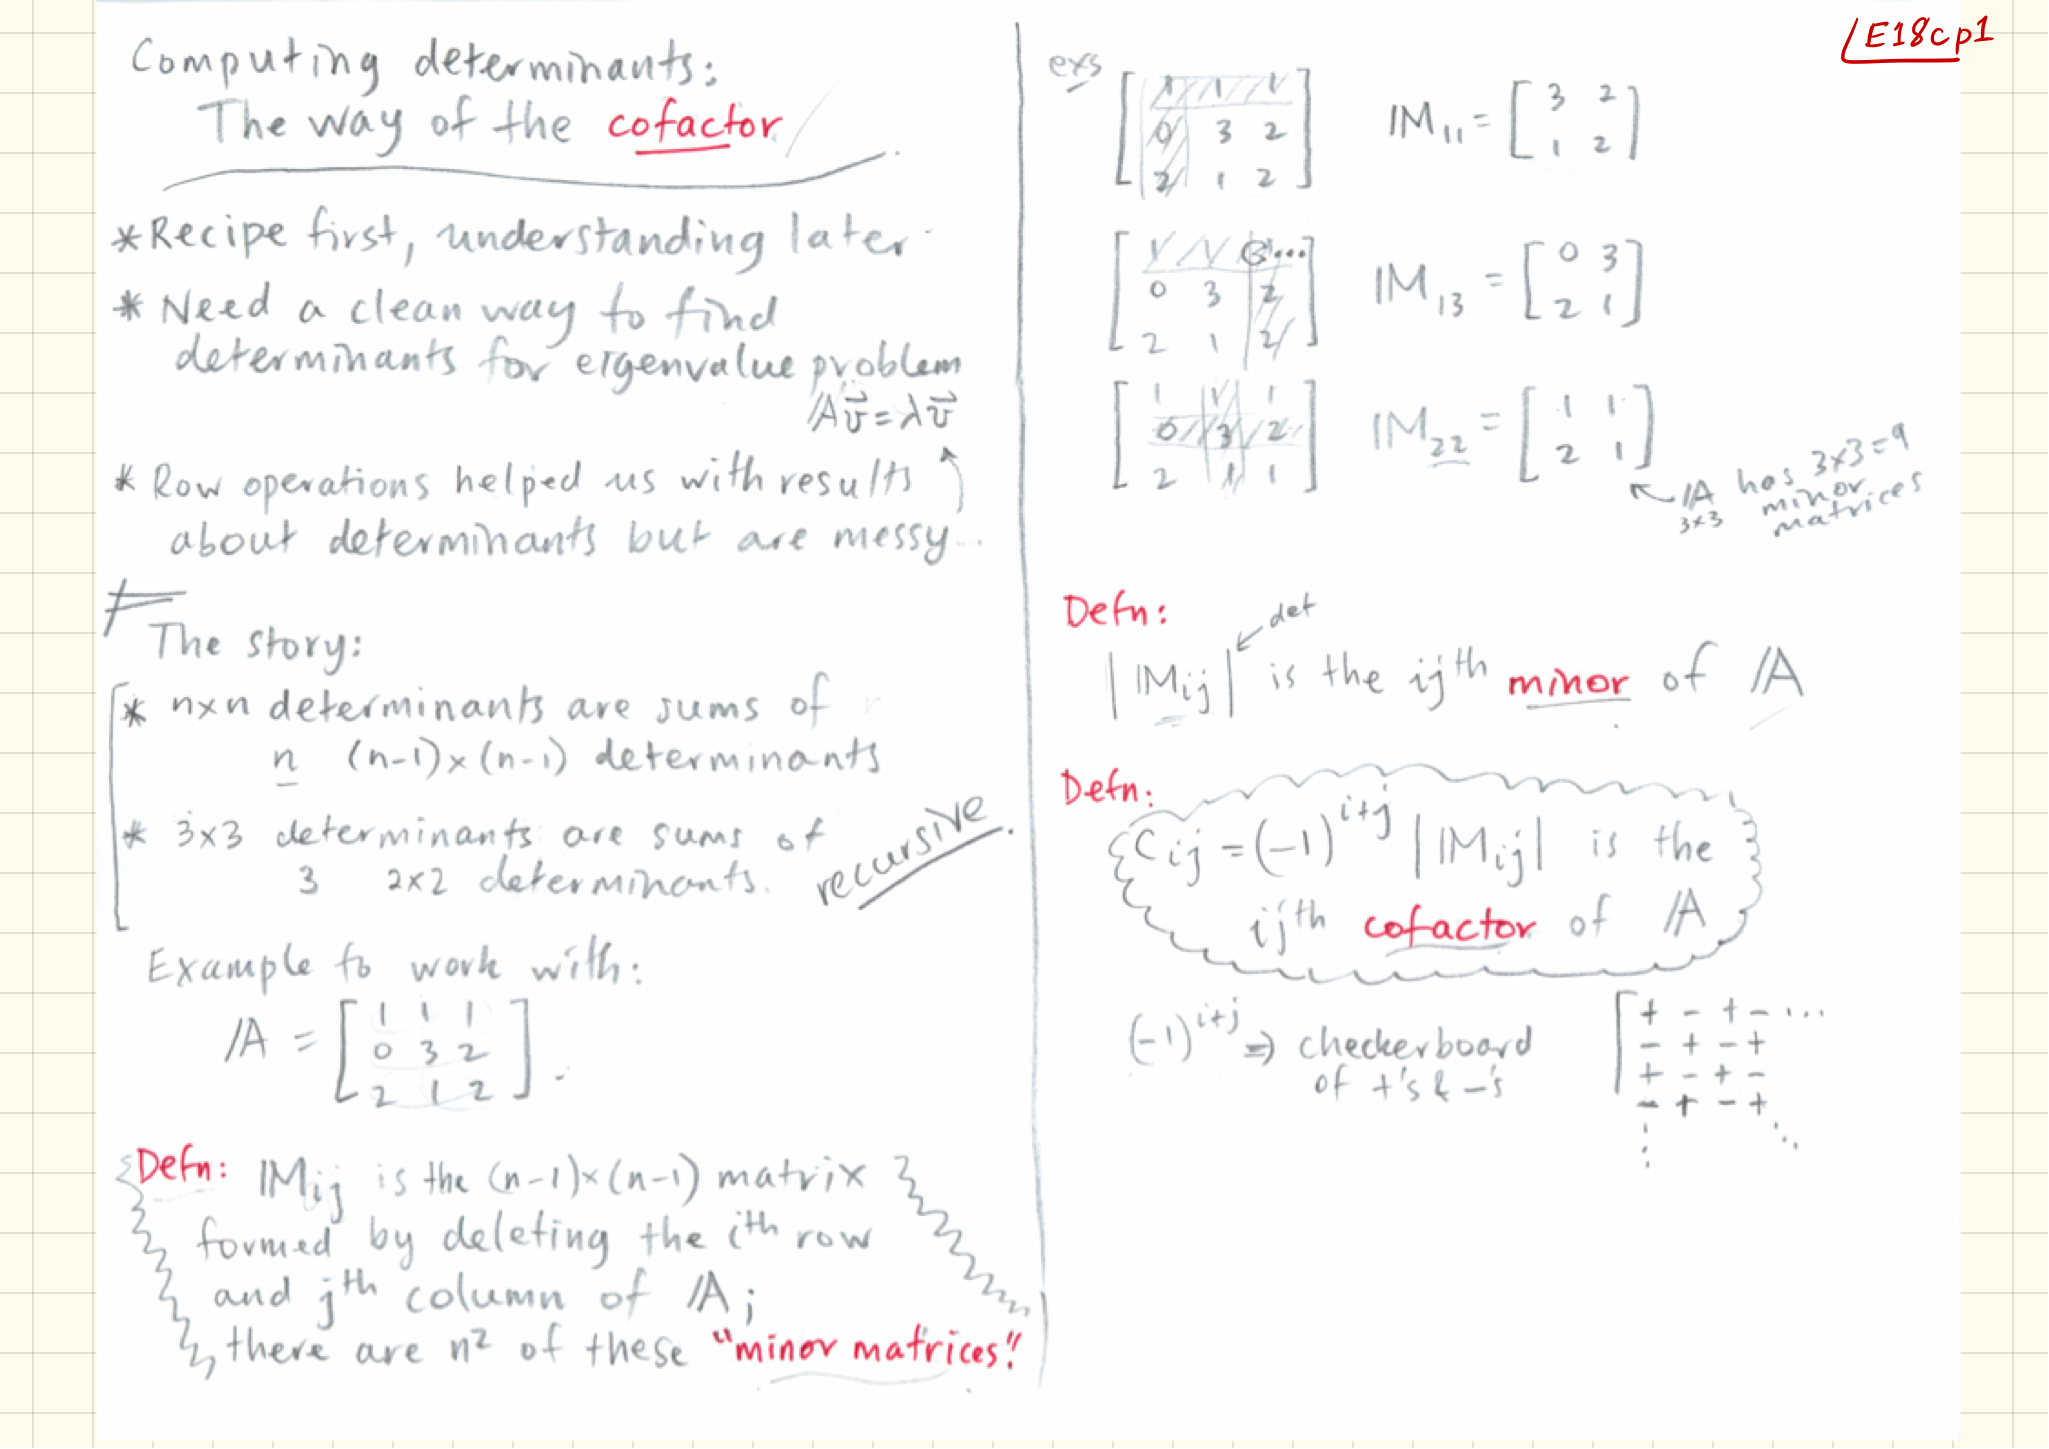 Computing determinants:
The way of the cofactor
*Recipe first, understanding later
* Need a clean way to find
determinants for eigenvalue problem
𝔸v⃗ = λv⃗
* Row operations helped us with results
about determinants but are messy...
The story:
* n×n determinants are sums of
n (n-1)×(n-1) determinants
* 3×3 determinants are sums of
3 2×2 determinants.
recursive.
Example to work with:
𝔸 = [1 1 1
0 3 2
2 1 2].
Defn: 𝕄ij is the (n-1)×(n-1) matrix
formed by deleting the ith row
and jth column of 𝔸;
there are n² of these "minor matrices."
E18cp1
exs
[1 1 1
0 3 2
2 1 2]
𝕄11 = [3 2
1 2]
0 3 2
2 1 2]
𝕄13 = [0 3
2 1]
[1 1 1
0 3 2
2 1 1]
𝕄22 = [1 1
2 1]
𝔸 has 3×3=9
3×3 minor
matrices
Defn:
det
|𝕄ij| is the ijth minor of 𝔸
Defn:
Cij = (-1)^i+j |𝕄ij| is the
ijth cofactor of 𝔸
(-1)^i+j ⇒ checkerboard
of +'s & -'s
[+ - + - ...
- + - +
+ - + -
- + - +